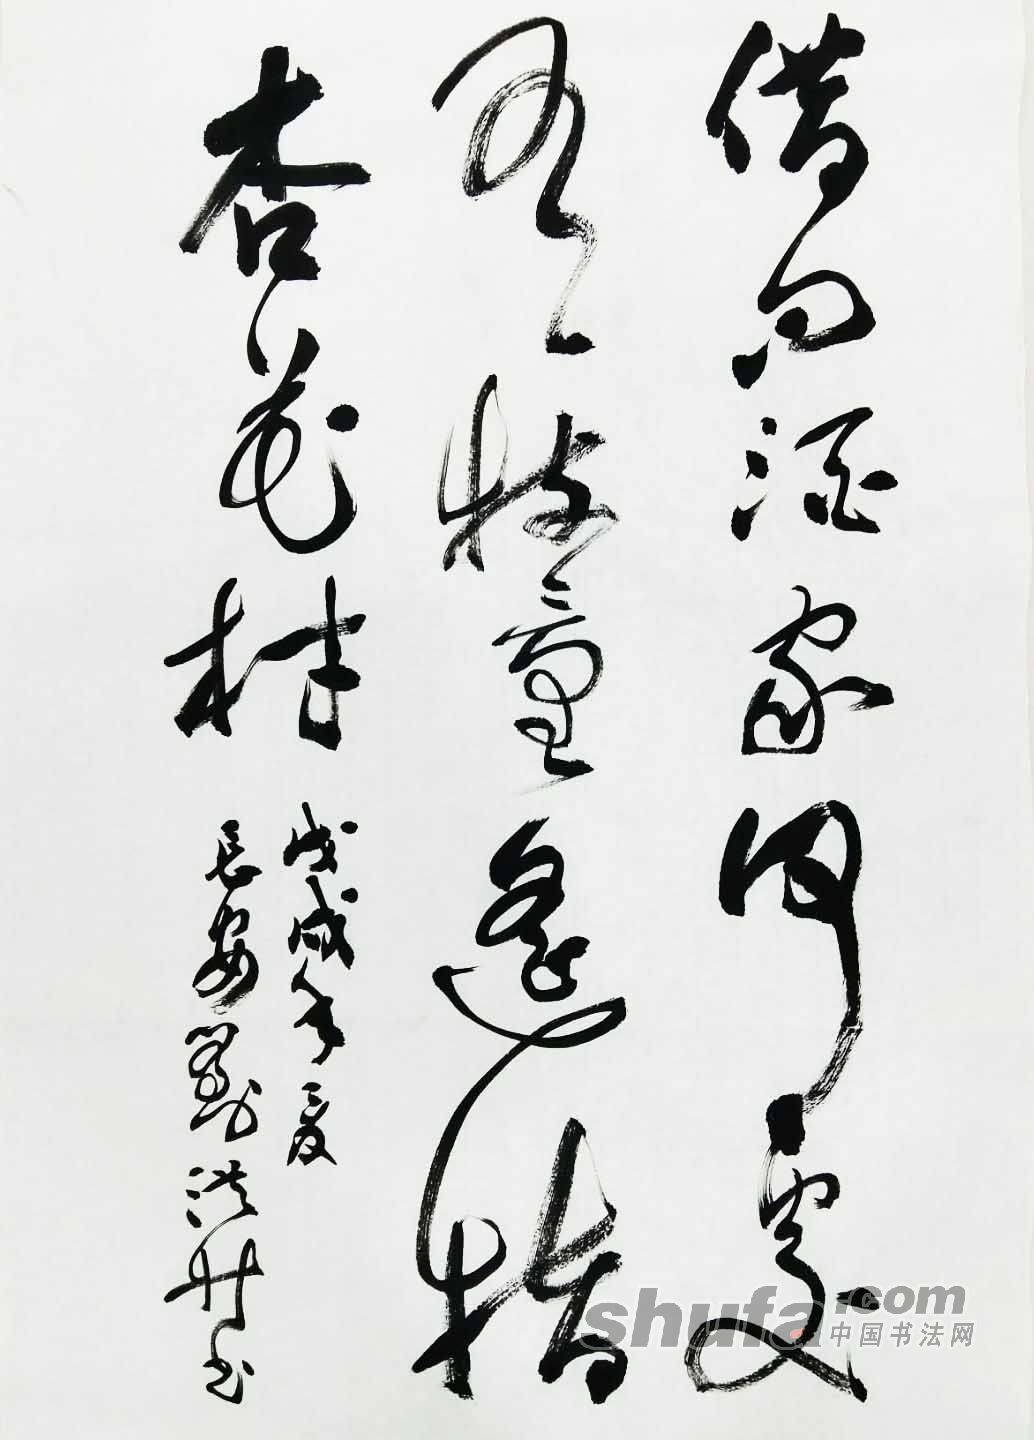 借问酒家何處
有牧童遙指
杏花村
戊戌年夏
長安劉洪升书
shufa.com
中国书法网